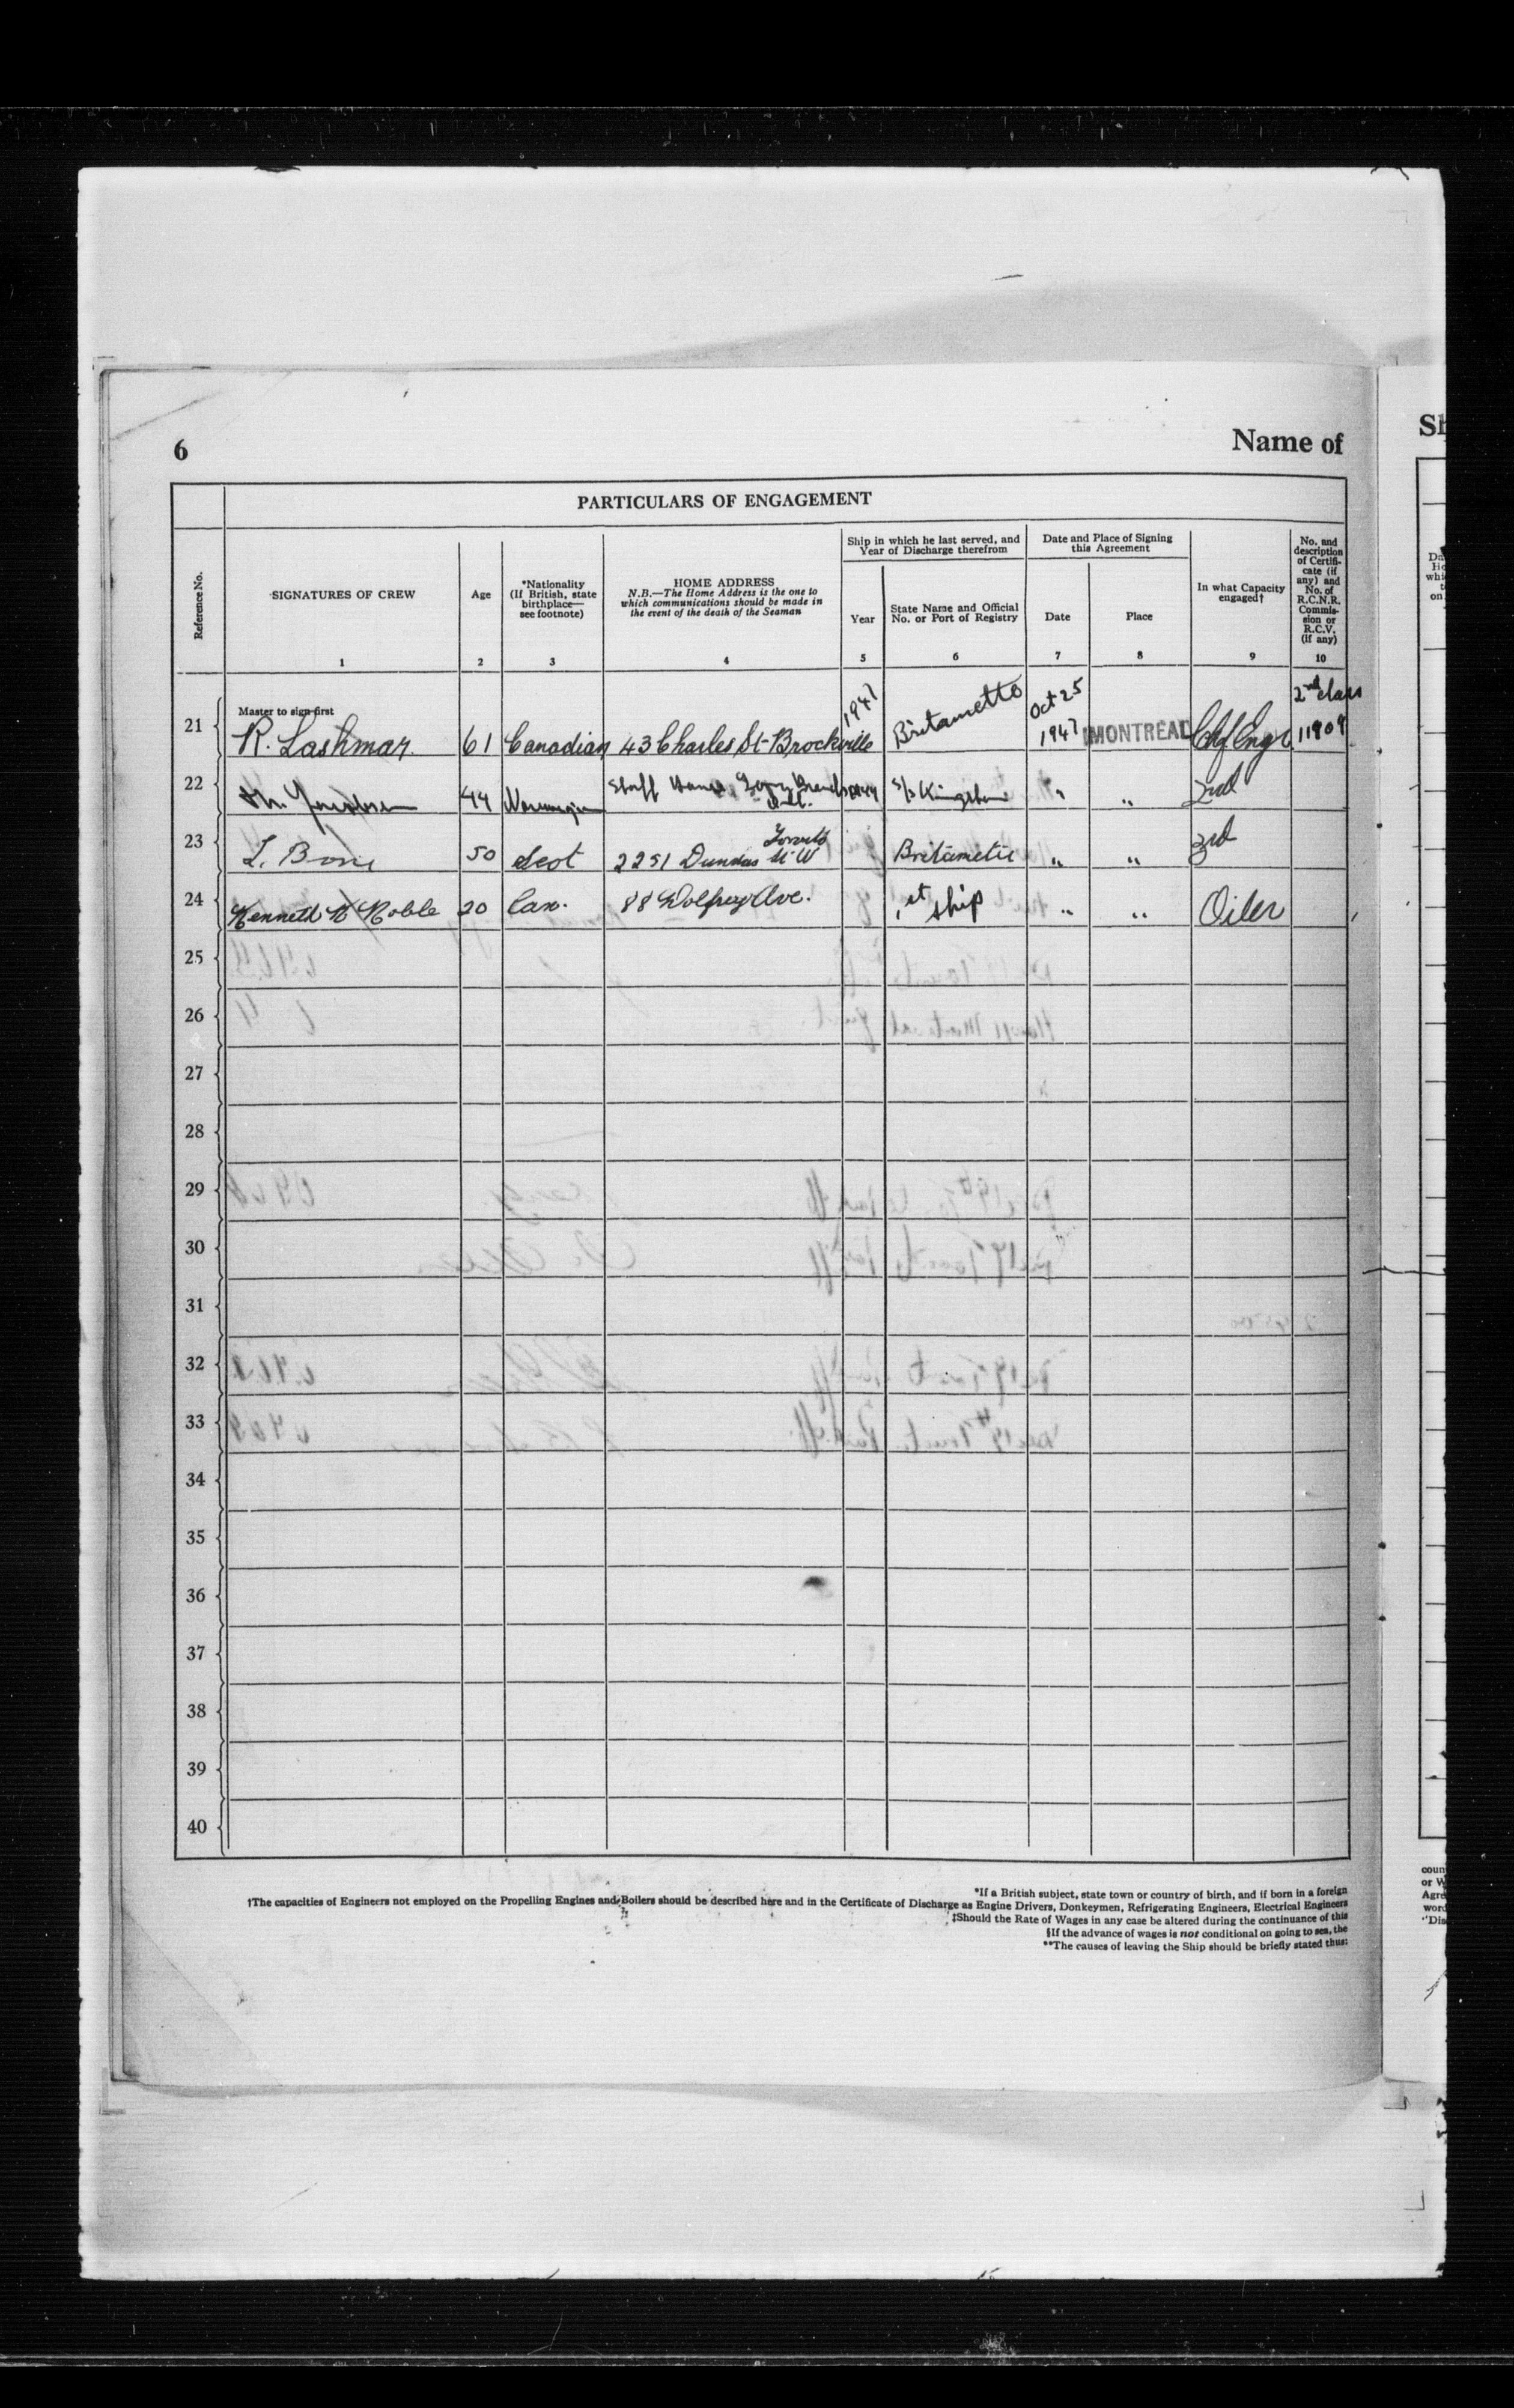 6
Name of
Sh
PARTICULARS OF ENGAGEMENT
Reference No.
SIGNATURES OF CREW
1
Age
2
*Nationality
(If British, state
birthplace—
see footnote)
3
HOME ADDRESS
N.B.—The Home Address is the one to
which communications should be made in
the event of the death of the Seaman
4
Ship in which he last served, and
Year of Discharge therefrom
Year
5
State Name and Official
No. or Port of Registry
6
Date and Place of Signing
this Agreement
Date
7
Place
8
In what Capacity
engaged†
9
No. and
description
of Certifi-
cate (if
any) and
No. of
R.C.N.R.
Commis-
sion or
R.C.V.
(if any)
10
Master to sign first
21 R. Lashmar. 61 Canadian 43 Charles St-Brockville 1947 Britamette Oct 25 1947 MONTREAL Chf Engr 2nd class 11909
22 44 Norwegian Staff House S/S Kingston " " 2nd
23 50 Scot 2251 Dundas St W Toronto Britametic " " 3rd
24 Kenneth Noble 20 Can. 88 Wolfrey Ave. 1st ship " " Oiler
25
26
27
28
29
30
31
32
33
34
35
36
37
38
39
40
*If a British subject, state town or country of birth, and if born in a foreign
†The capacities of Engineers not employed on the Propelling Engines and Boilers should be described here and in the Certificate of Discharge as Engine Drivers, Donkeymen, Refrigerating Engineers, Electrical Engineers
‡Should the Rate of Wages in any case be altered during the continuance of this
§If the advance of wages is not conditional on going to sea, the
**The causes of leaving the Ship should be briefly stated thus: